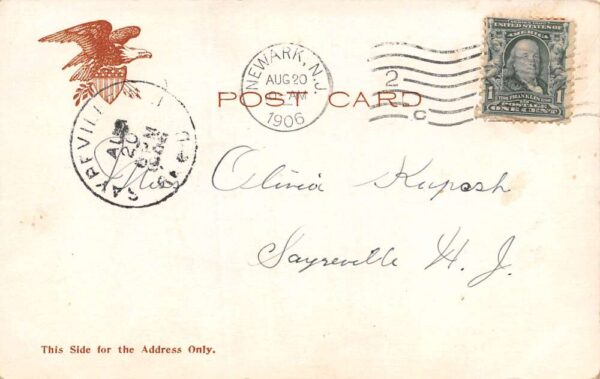 NEWARK, N.J.
AUG 20
AM
1906
2
C
UNITED STATES OF AMERICA
FRANKLIN
ONE CENT
1 1
POST CARD
SAYREVILLE
AUG
20
Miss Olivia Kupsh
Sayreville N. J.
This Side for the Address Only.